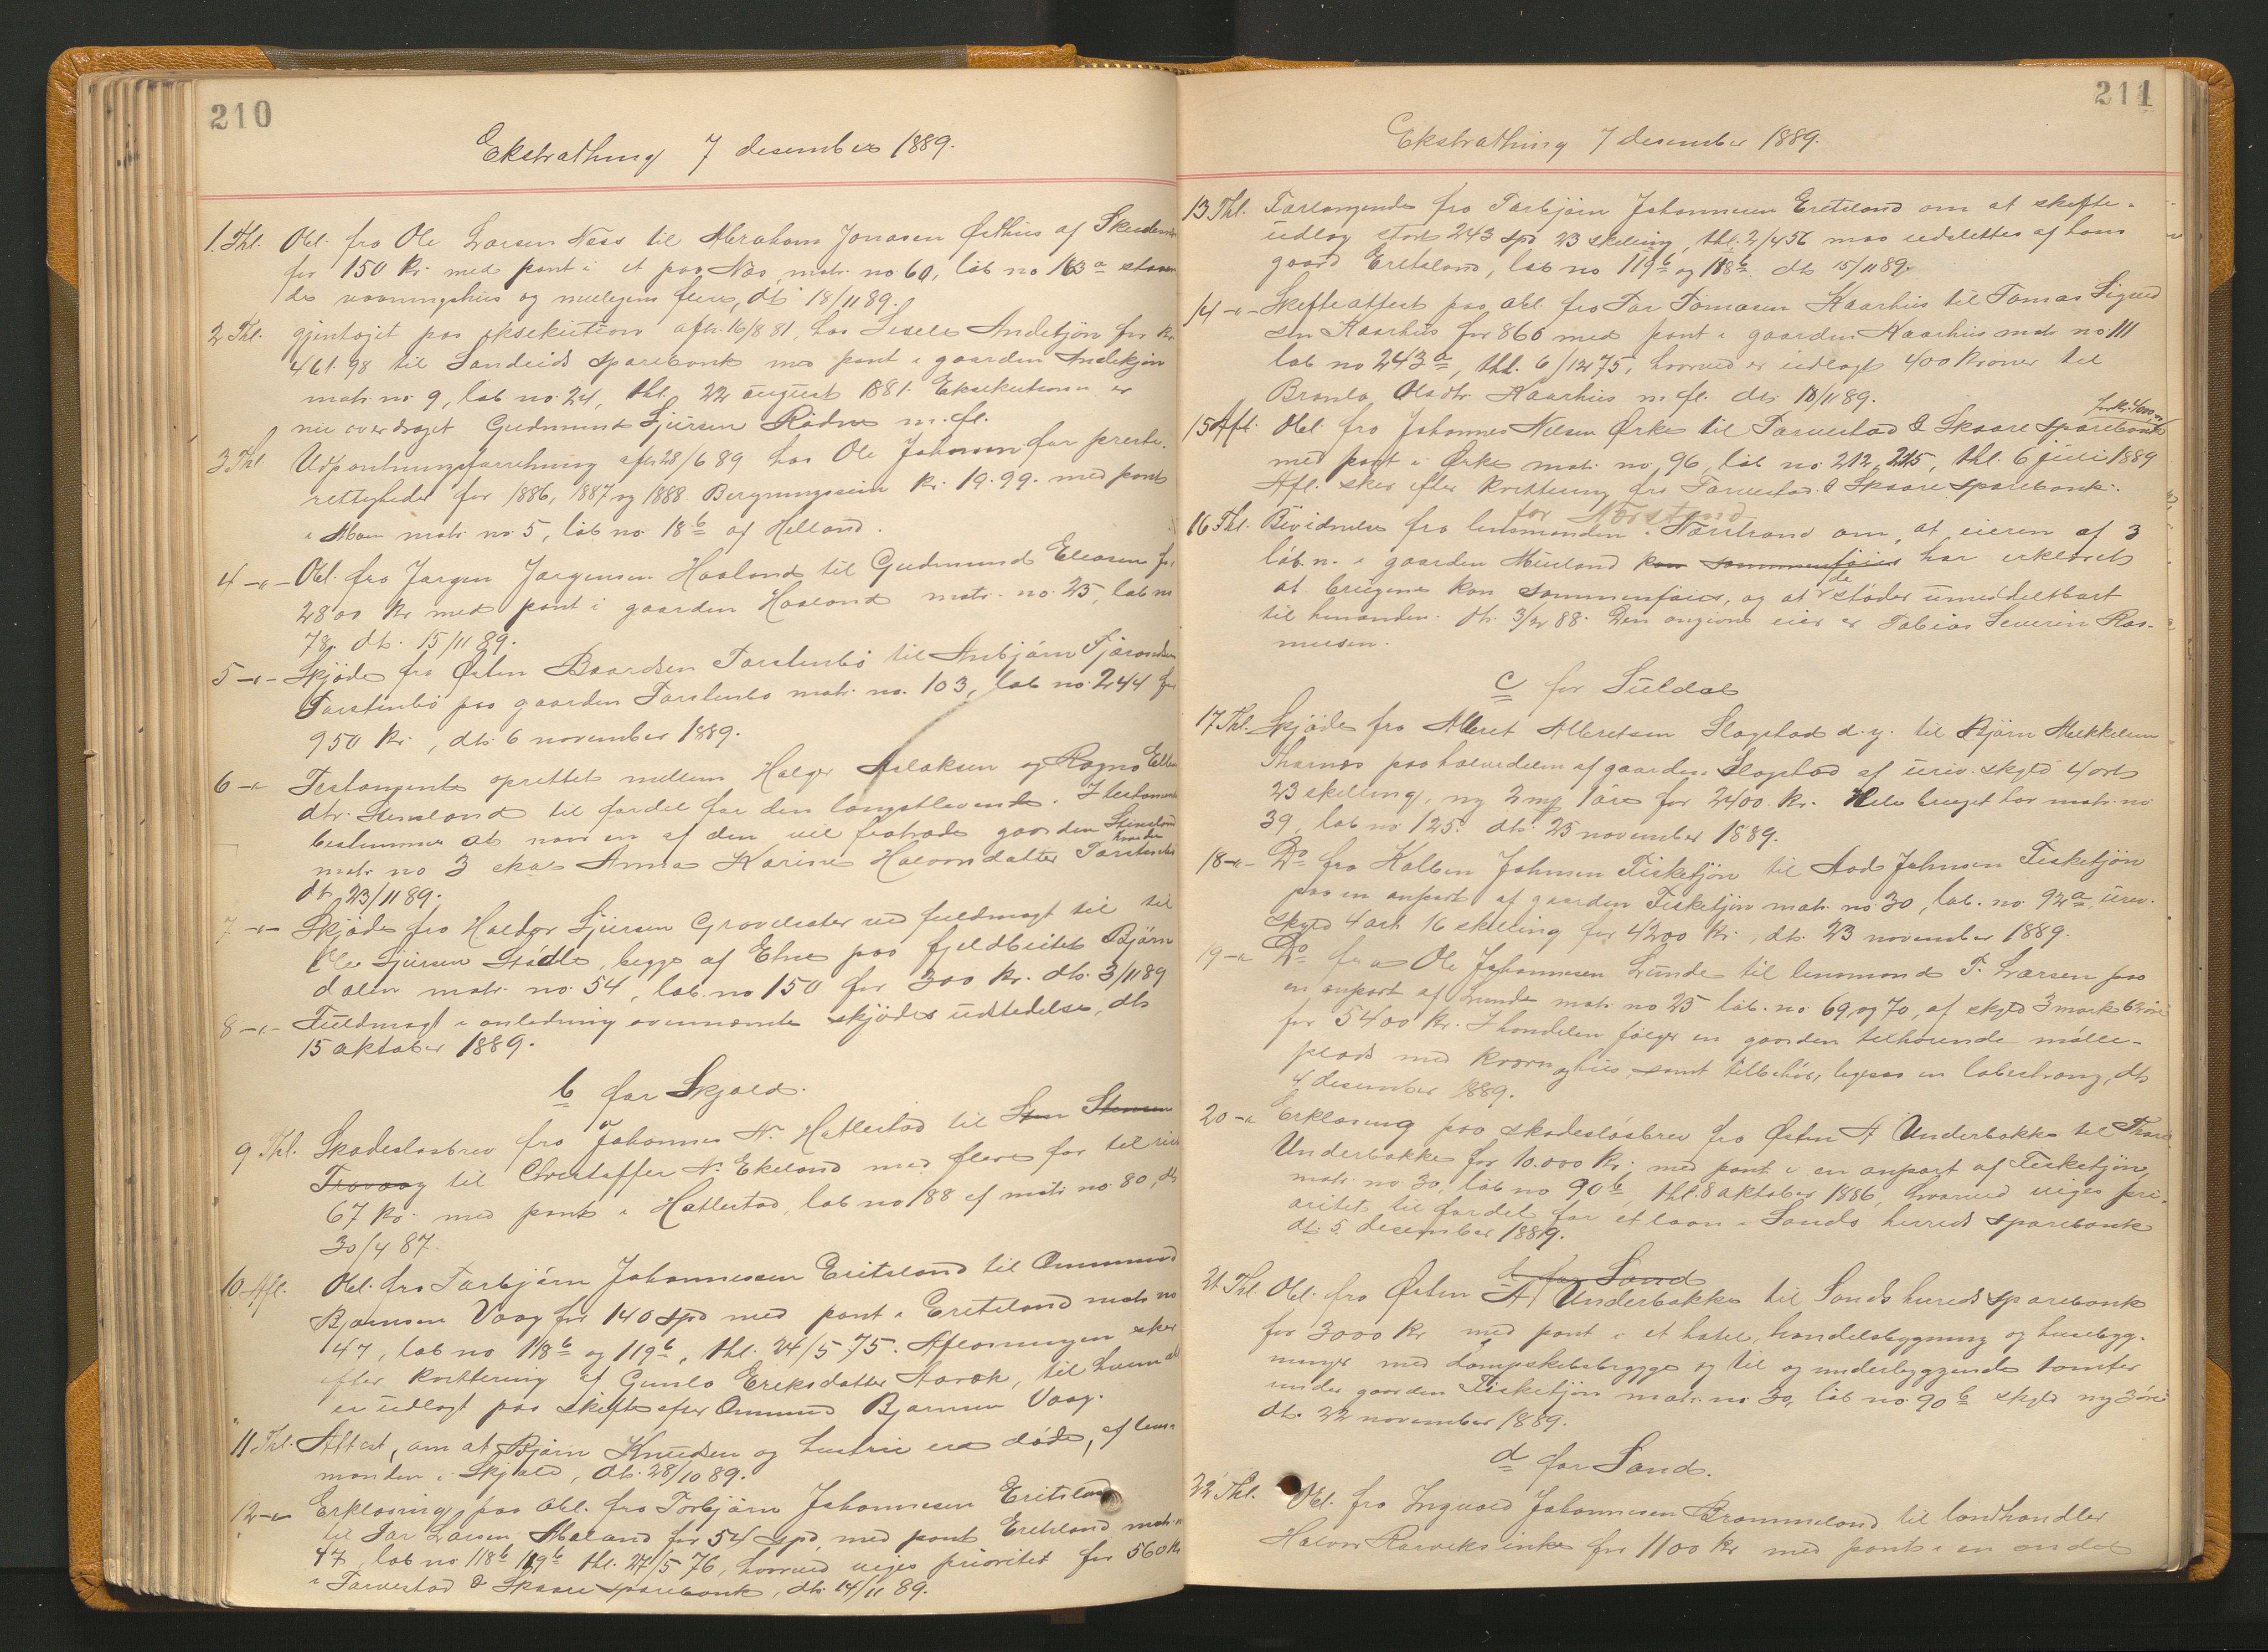 210
Ekstrathing 7 desember 1889.
1. Thl. Obl. fra Ole Larsen Næss til Abraham Jonasen Østhus af Skudenes
for 150 kr. med pant i et paa Næs, matr. no. 60, løb no 163a staaen
de vaaningshus og muligens flere, dt. 18/11 89.
2 Thl. gjentaget paa eksekution afh. 16/8 81, hos Sjule Andetjøn for kr.
461.98 til Sandeids sparebank med pant i gaarden Andetjøn
matr. no. 9, løb no. 24, thl. 22 august 1881. Eksekutionen er
nu overdraget Gudmund Sjursen Rødne m. fl.
3 Thl. Udpantningsforretning afh. 28/6 89 hos Ole Johnsen for preste-
rettigheder for 1886, 1887 og 1888. Bergningssum kr. 19.99. med pant
i Moen matr. no. 5, løb no. 18b af Helland.
4 -"- Obl. fra Jørgen Jørgensen Haaland til Gudmund Eliasen for
2800 kr med pant i gaarden Haaland matr. no. 25, løb no
78. dt. 15/11 89.
5 -"- Skjøde fra Østen Baardsen Torstenbø til Anbjørn
Torstenbø paa gaarden Torstenbø matr. no. 103, løb no. 244 for
950 kr., dt. 6 november 1889.
6 -"- Testamente oprettet mellem Helge Aslaksen og Ragna Ellen
dtr. Stensland til fordel for den længstlevende. I testamentet
bestemmes at naar en af dem vil fratræde gaarden Stensland
matr. no 3 skal Anna Karine Halvorsdatter
dt. 23/11 89.
7 -"- Skjøde fra Haldor Sjursen Grovesæter ved fuldmagt til til
Ole Sjursen Stødle, begge af Etne paa fjeldbeitet Bjørn
dalen matr. no. 54, løb. no 150 for 300 kr. dt. 3/11 89
8 -"- Fuldmagt i anledning ovennævnte skjødes udstedelse, dt.
15 oktober 1889.
b for Skjold.
9 Thl. Skadesløsbrev fra Johannes N. Hatlestad til Sten Stensen
Trovaag til Christoffer N. Ekeland med flere for
67 kr. med pant i Hatlestad, løb no 188 af matr. no. 80, dt.
30/4 87.
10 Afl. Obl. fra Torbjørn Johannessen Eritsland til Ommund
Bjørnsen Vaag for 140 spd med pant i Eritsland matr. no
47, løb no 118b og 119b, thl. 24/5 75. Aflæsningen sker
efter kvittering af Gunla Eriksdatter Aarak, til hvem obl
er udlagt paa skifte efter Ommund Bjørnsen Vaag.
11 Thl. Attest, om at Bjørn Knudsen og hustru er døde, af lens-
manden i Skjold, dt. 28/10 89.
12 -"- Erklæring paa obl. fra Torbjørn Johannesen Eritsland
til Tor Larsen Aaland for 54 spd, med pant Eritsland matr. n
47, løb no 118b 119b thl. 27/5 76, hvorved viges prioritet for 560 kr
i Torvestad & Skaare sparebank, dt. 14/11 89.
211
Ekstrathing 7 desember 1889.
13 Thl. Forlangende fra Torbjørn Johannesen Eritsland om at skifte-
udlæg stort 243 spd 23 skilling, thl. 2/4 56 maa udslettes af hans
gaard Eritsland, løb no 119b og 118b. dt. 15/11 89.
14 -"- Skifteattest paa obl. fra Tor Tomasen Kaarhus til Tomas Sigurd
sen Kaarhus for 860 med pant i gaarden Kaarhus matr. no. 111
løb no 243a, thl. 6/12 75, hvorved er udlagt 400 kroner til
Bronla Olsdtr. Kaarhus m. fl. dt. 18/11 89.
for kr. 4000
15 Afl. Obl. fra Johannes Nilsen Ørke til Torvestad & Skaare sparebank
med pant i Ørke matr. no. 96, løb no. 212, 215, thl. 6 juli 1889
Afl. sker efter kvittering fra Torvestad & Skaare sparebank.
for Nærstrand
16 Thl. Bevidnelse fra lensmanden i Nærstrand om, at eieren af 3
løb. n. i gaarden Meeland kan sammenføies har erklæret
at brugene kan sammenføies, og at de støder umiddelbart
til hinanden. dt. 3/12 88. Den angivne eier er Tobias Severin Ras-
mussen.
c for Suldal
17 Thl. Skjøde fra Albret Albretsen Slogstad d. y. til Bjørn Mikkelsen
Tharnes paa halvedelen af gaarden Slogstad af urev. skyld 4 ort
23 skilling, ny 2 m 1 øre for 2400 kr. Hele bruget har matr. no.
39, løb no 125. dt. 25 november 1889.
18 -"- Do fra Kolben Johnsen Fisketjøn til Aad Johnsen Fisketjøn
paa en anpart af gaarden Fisketjøn matr. no. 30, løb. no. 92a, urev.
skyld 4 ort 16 skilling for 4200 kr., dt. 23 november 1889.
19 -"- Do fra Ole Johannesen Lunde til lensmand T. Larsen paa
en anpart af Lunde matr. no 25 løb. no 69, og 70, af skyld 3 mark 62 øre
for 5400 kr. I handelen følger en gaarden tilhørende mølle-
plads med kværn og hus, samt tilbehør, ligesaa en laberhvang, dt.
4 desember 1889.
20 -"- Erklæring paa skadesløsbrev fra Østen A Underbakke til Thore
Underbakke for 10.000 kr. med pant i en anpart af Fisketjøn,
matr. no. 30, løb no 90b, thl. 8 oktober 1886, hvorved viges pri-
oritet til fordel for et laan i Sands herreds sparebank
dt. 5 desember 1889.
d for Sand
21 Thl. Obl. fra Østen A Underbakke til Sands herreds sparebank
for 3000 kr med pant i et hotel, handelsbygning og husebyg-
ninger med dampskibsbrygge og til og underliggende tomter
under gaarden Fisketjøn matr. no. 30, løb no. 90b skyld ny 3 øre
dt. 22 november 1889.
d for Sand.
22 Thl. Obl. fra Ingvald Johannesen Brommeland til landhandler
Halvor Rarviks enke for 1100 kr med pant i en andel